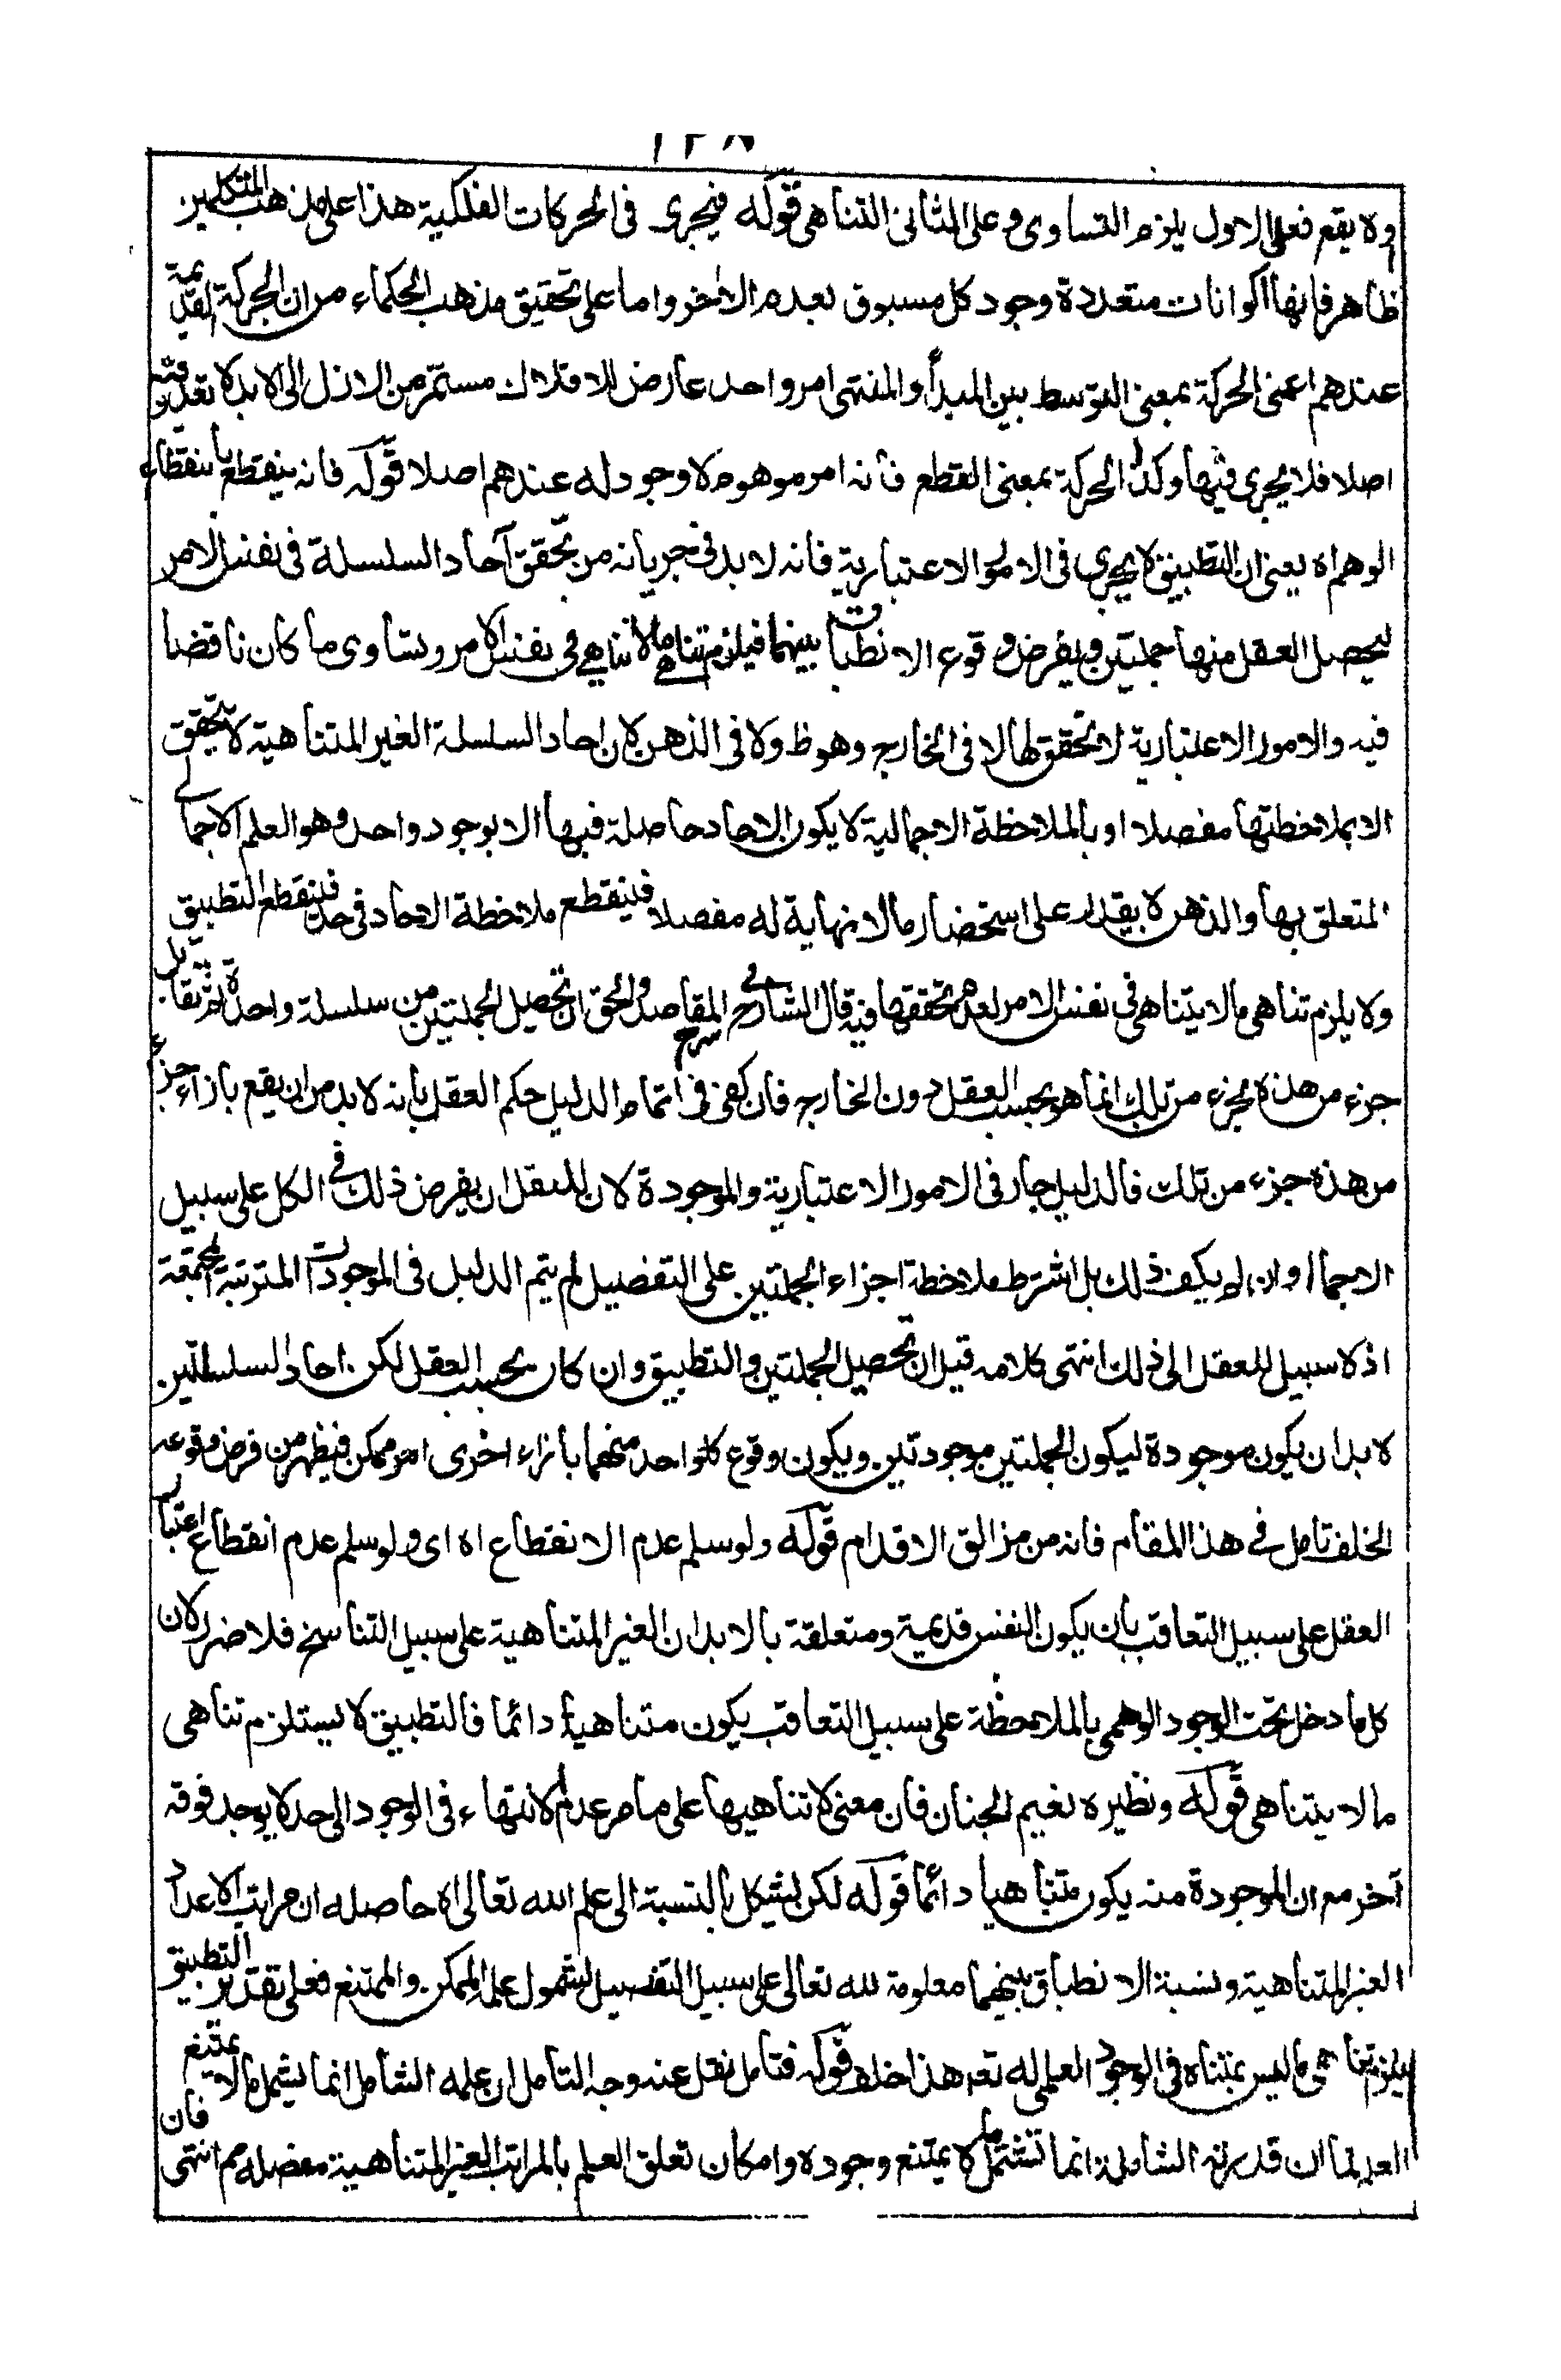 ١٢٨
ولا يقع فعلى الاول يلزم التساوى وعلى الثانى التناهى قوله فيجرى فى الحركات الفلكية هذا على مذهب المتكلمين
ظاهر فانها اكوانات متعددة وجود كل مسبوق بعدم الاخر واما على تحقيق مذهب الحكماء من ان الحركة القديمة
عندهم اعنى الحركة بمعنى التوسط بين المبدأ والمنتهى امر واحد عارض للافلاك مستمر من الازل الى الابد لا تعدد فيه
اصلا فلا يجرى فيها وكذا الحركة بمعنى القطع فانه امر موهوم لا وجود له عندهم اصلا قوله فانه ينقطع بانقطاع
الوهم اه يعنى ان التطبيق لا يجرى فى الامور الاعتبارية فانه لا بد فى جريانه من تحقق آحاد السلسلة فى نفس الامر
ليحصل العقل منها جملتين ويفرض وقوع الانطباق بينهما فيلزم تناهى ما لا تناهى فى نفس الامر وتساوى ما كان ناقصا
فيه والامور الاعتبارية لا تحقق لها لا فى الخارج وهو ظ ولا فى الذهن لان احاد السلسلة الغير المتناهية لا يتحقق
الا بملاحظتها مفصلا او بالملاحظة الاجمالية لا يكون الاحاد حاصلة فيها الا بوجود واحد وهو العلم الاجمالى
المتعلق بها والذهن لا يقدر على استحضار ما لا نهاية له مفصلا فينقطع ملاحظة الاحاد فى حد فينقطع التطبيق
ولا يلزم تناهى ما لا يتناهى فى نفس الامر لعدم تحققها فيه قال الشارح فى شرح المقاصد والحق ان تحصيل الجملتين من سلسلة واحدة ثم تقابل
جزء من هذه بجزء من تلك انما هو بحسب العقل دون الخارج فان كفى فى اتمام الدليل حكم العقل بانه لا بد من ان يقع بازاء جزء
من هذه جزء من تلك فالدليل جار فى الامور الاعتبارية والموجودة لان للعقل ان يفرض ذلك فى الكل على سبيل
الاجمال وان لم يكف ذلك بل اشترط ملاحظة اجزاء الجملتين على التفصيل لم يتم الدليل فى الموجودات المترتبة المجتمعة
اذ لا سبيل للعقل الى ذلك انتهى كلامه قيل ان تحصيل الجملتين والتطبيق وان كان بحسب العقل لكن احاد السلسلتين
لا بد ان يكون موجودة ليكون الجملتين موجودتين ويكون وقوع كل واحد منهما بازاء اخرى امر ممكن فيظهر من فرض وقوعه
الخلف تامل فى هذا المقام فانه من مزالق الاقدام قوله ولو سلم عدم الانقطاع اه اى ولو سلم عدم انقطاع اعتبار
العقل على سبيل التعاقب بان يكون النفس قديمية ومتعلقة بالابدان الغير المتناهية على سبيل التناسخ فلا ضرر لان
كل ما دخل تحت الوجود الوهمى بالملاحظة على سبيل التعاقب يكون متناهية دائما فالتطبيق لا يستلزم تناهى
ما لا يتناهى قوله ونظيره نعيم الجنان فان معنى لا تناهيها على ما مر عدم الانتهاء فى الوجود الى حد لا يوجد فوقه
آخر مع ان الموجودة منه يكون متناهيا دائما قوله لكن يشكل بالنسبة الى علم الله تعالى اه حاصله ان مراتب الاعداد
الغير المتناهية ونسبة الانطباق بينهما معلومة لله تعالى على سبيل التفصيل لشمول علمه الممكن والممتنع فعلى تقدير التطبيق
يلزم تناهى ما ليس بمتناه فى الوجود العلمى له تعه هذا خلف قوله فتامل نقل عنه وجه التامل ان علمه الشامل انما يشمل ما لا يمتنع
العد لما ان قدرته الشاملة انما تشتمل ما لا يمتنع وجوده وامكان تعلق العلم بالمراتب الغير المتناهية مفصلة مم انتهى فان